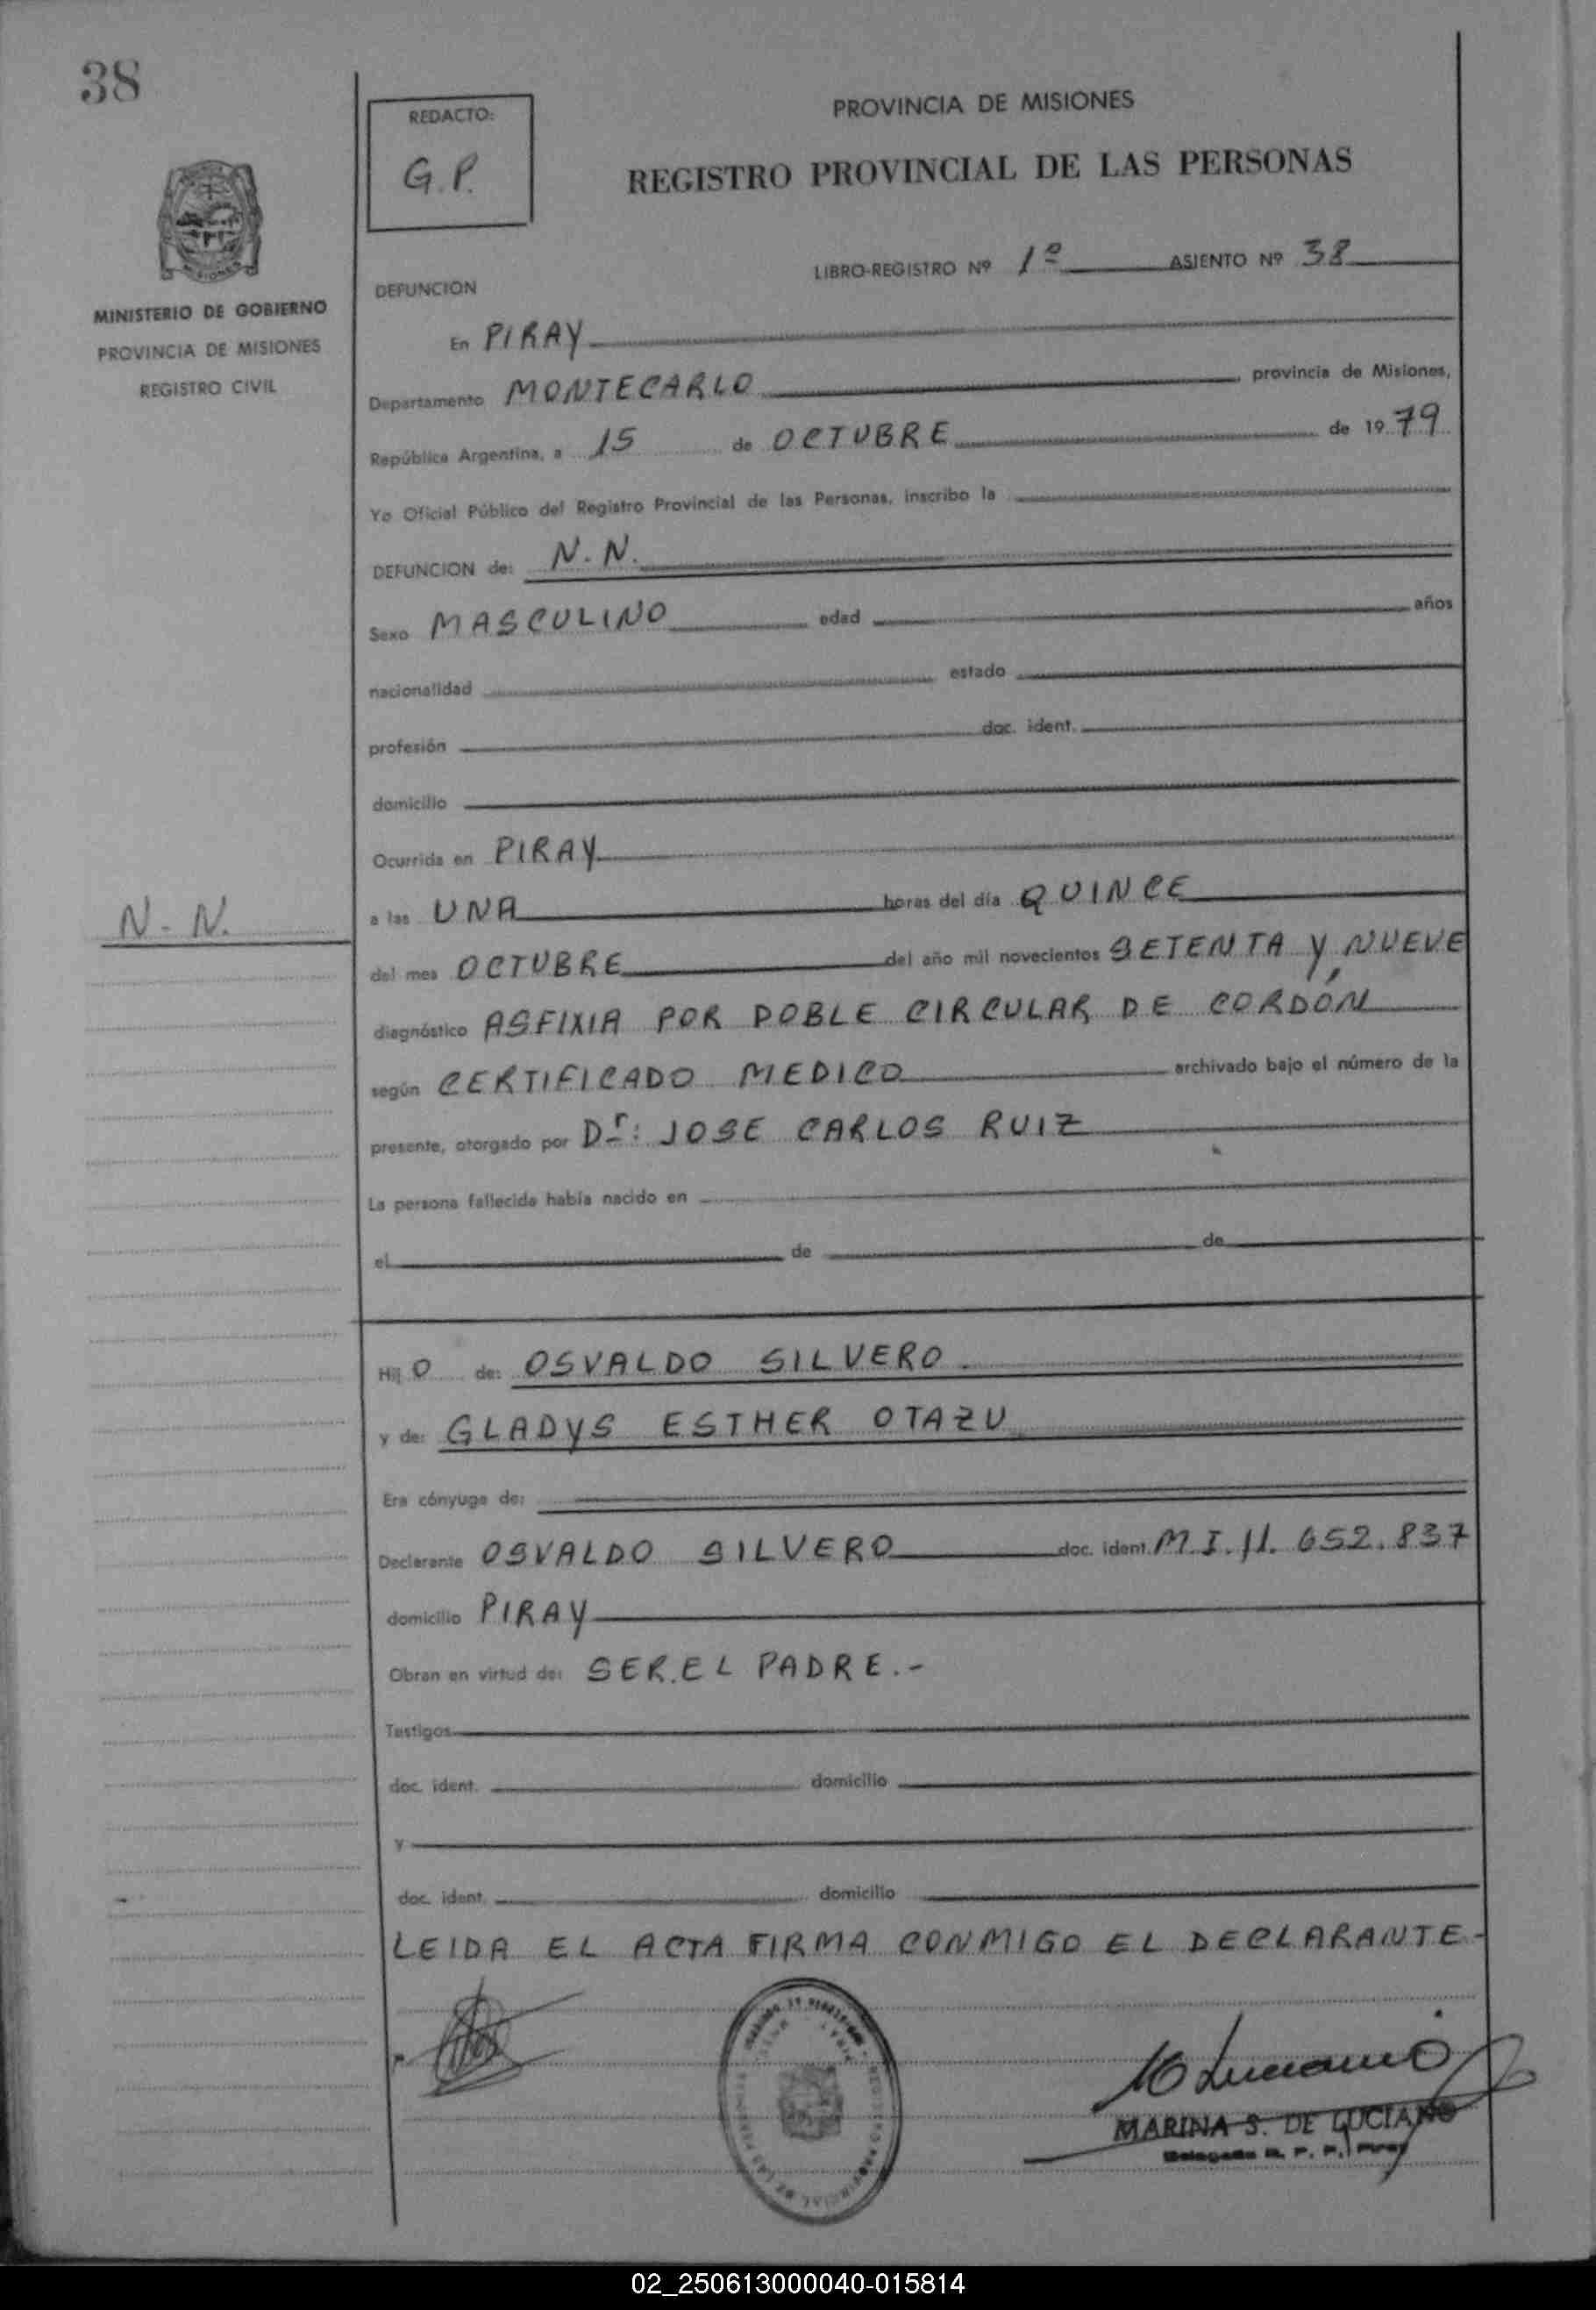 38
REDACTO:
G.P.
PROVINCIA DE MISIONES
REGISTRO PROVINCIAL DE LAS PERSONAS
MINISTERIO DE GOBIERNO
PROVINCIA DE MISIONES
REGISTRO CIVIL
LIBRO-REGISTRO Nº 1º ASIENTO Nº 38
DEFUNCION
En PIRAY
Departamento MONTECARLO provincia de Misiones,
República Argentina, a 15 de OCTUBRE de 1979
Yo Oficial Público del Registro Provincial de las Personas, inscribo la
DEFUNCION de: N.N.
Sexo MASCULINO edad años
nacionalidad estado
profesión doc. ident.
domicilio
Ocurrida en PIRAY
N-N.
a las UNA horas del día QUINCE
del mes OCTUBRE del año mil novecientos SETENTA Y NUEVE
diagnóstico ASFIXIA POR DOBLE CIRCULAR DE CORDÓN
según CERTIFICADO MEDICO archivado bajo el número de la
presente, otorgado por Dr: JOSE CARLOS RUIZ
La persona fallecida había nacido en
el de de
Hij O de: OSVALDO SILVERO.
y de: GLADYS ESTHER OTAZU
Era cónyuge de:
Declarante OSVALDO SILVERO doc. ident. M.I. 11.652.837
domicilio PIRAY
Obran en virtud de: SER EL PADRE.-
Testigos
doc. ident. domicilio
y
doc. ident. domicilio
LEIDA EL ACTA FIRMA CONMIGO EL DECLARANTE-
MARINA S. DE LUCIANO
Delegada R. P. P. Piray
02_250613000040-015814